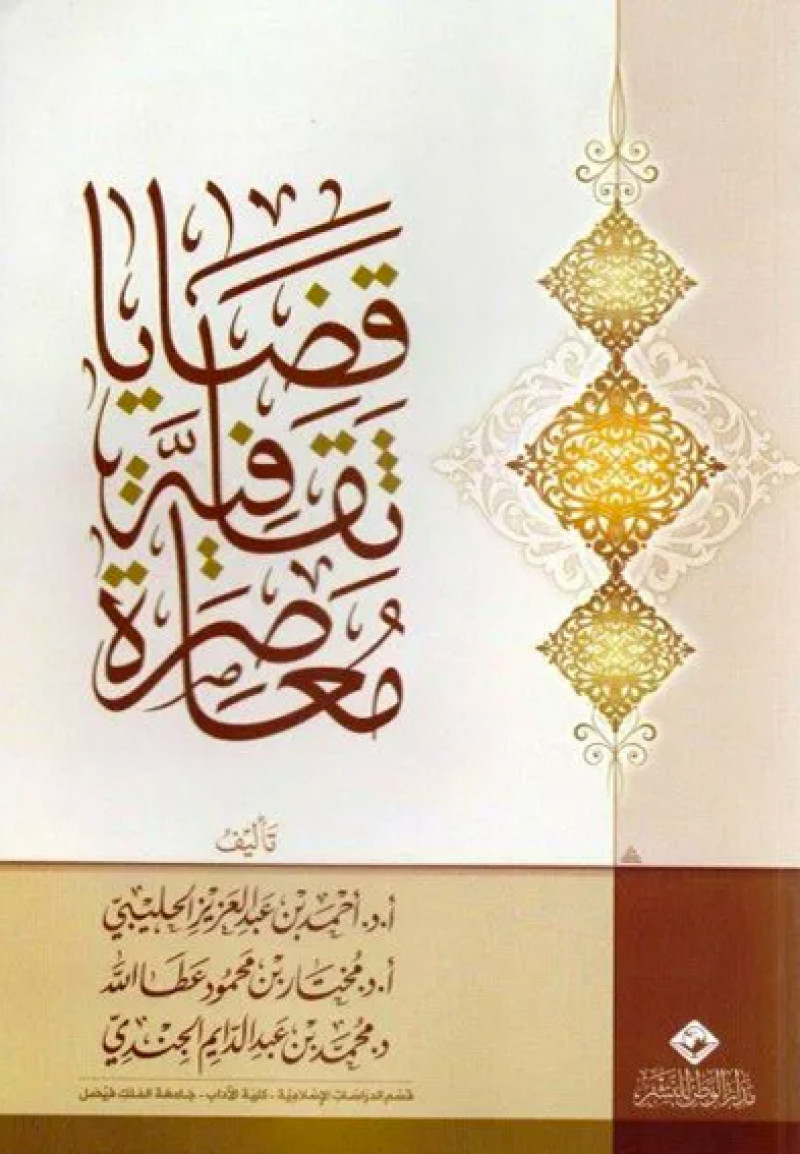 قَضَايَا
ثَقَافِيَّة
مُعَاصَرَة
تَأْلِيفُ
أ.د. أحْمَد بْن عَبْدِ العَزِيْزِ الحليْبيّ
أ.د. مُخْتَار بْن مَحمُود عَطَا اللّٰه
د. محمَّد بْن عَبْدِ الدَّايِم الجِنْدِيّ
قسم الدراسات الإسلامية - كلية الآداب - جامعة الملك فيصل
مدار الوطن للنشر